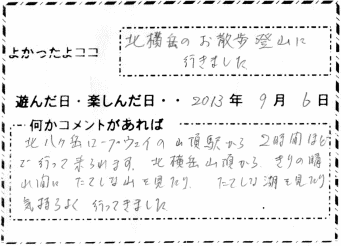 よかったよココ
北横岳のお散歩登山に
行きました
遊んだ日・楽しんだ日・・ 2013 年 9 月 6 日
何かコメントがあれば
北八ヶ岳ロープウェイの山頂駅から 2時間ほど
で行って来られます。北横岳山頂から きりの晴
間に たてしな山を見たり、 たてしな湖を見たり
気持ちよく 行ってきました